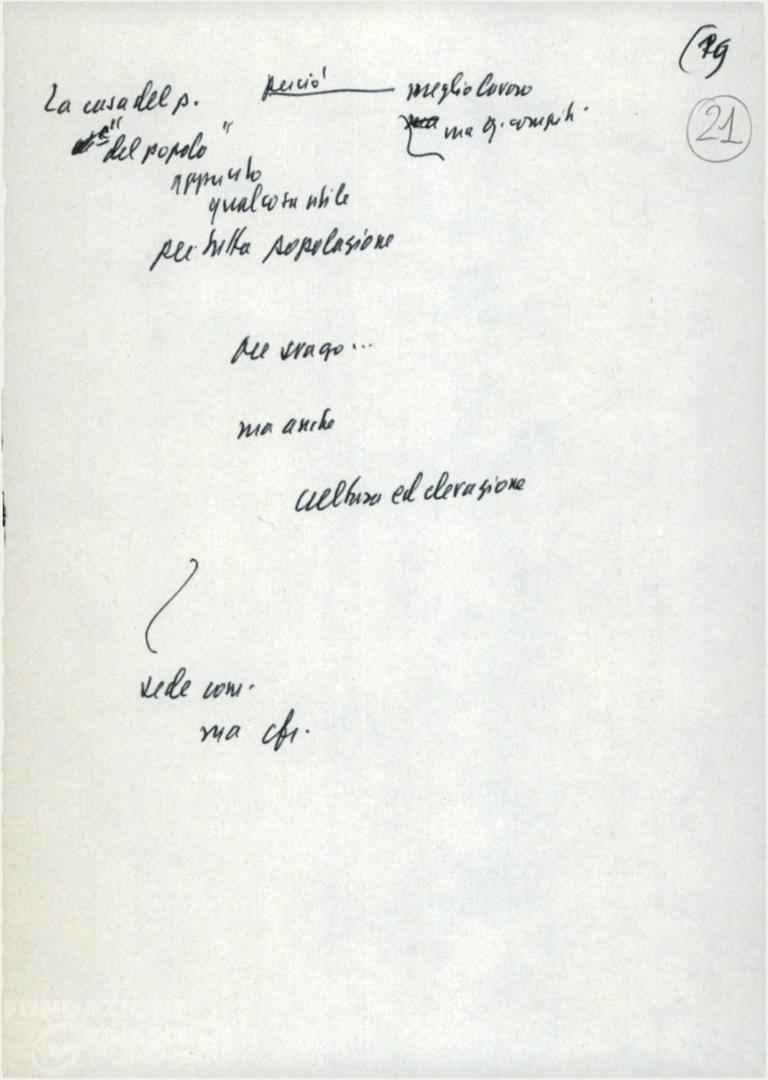 (19
21
La casa del p. perciò meglio lavoro
ma q. compiti
"del popolo"
appunto
qualcosa utile
per tutta popolazione
per svago...
ma anche
cultura ed elevazione
sede com.
ma cfr.
FONDAZIONE